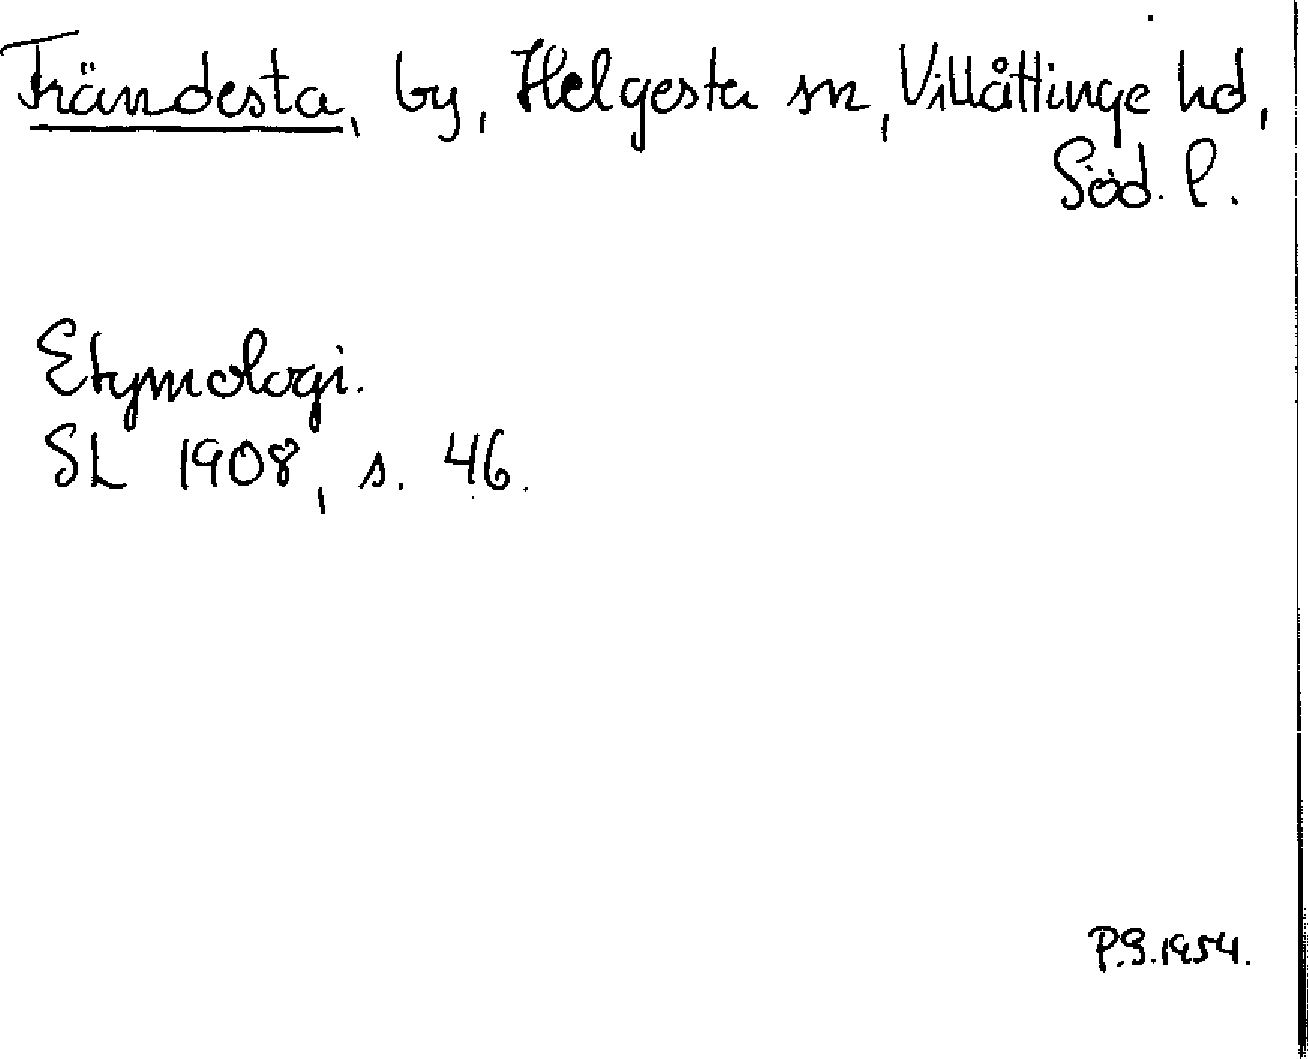 Trändesta, by, Helgesta sn, Villåttinge hd,
Söd. l.
Etymologi.
SL 1908, s. 46.
P.G.1954.